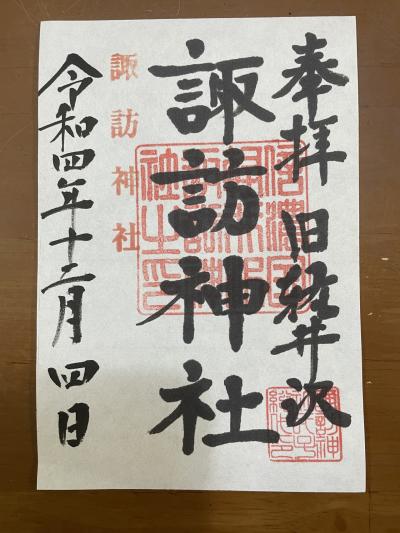 奉拝 旧軽井沢
諏訪神社
諏訪神社
令和四年十二月四日